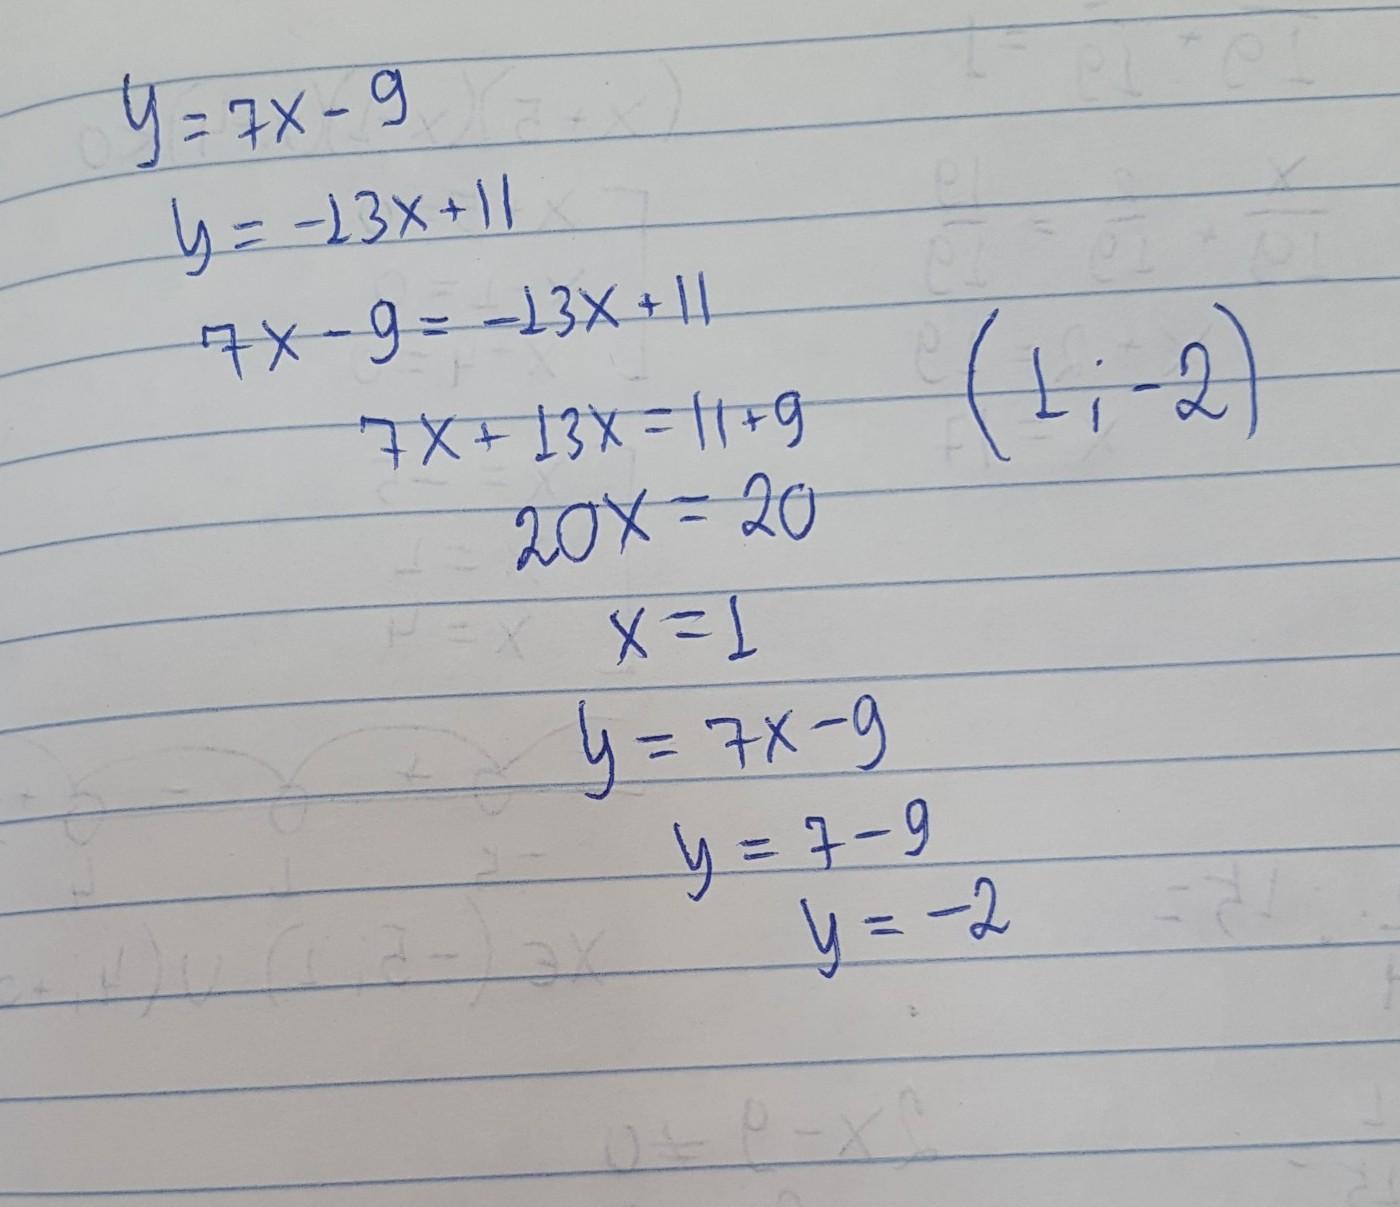 y = 7x - 9
y = -13x + 11
7x - 9 = -13x + 11
7x + 13x = 11 + 9
(1; -2)
20x = 20
x = 1
y = 7x - 9
y = 7 - 9
y = -2